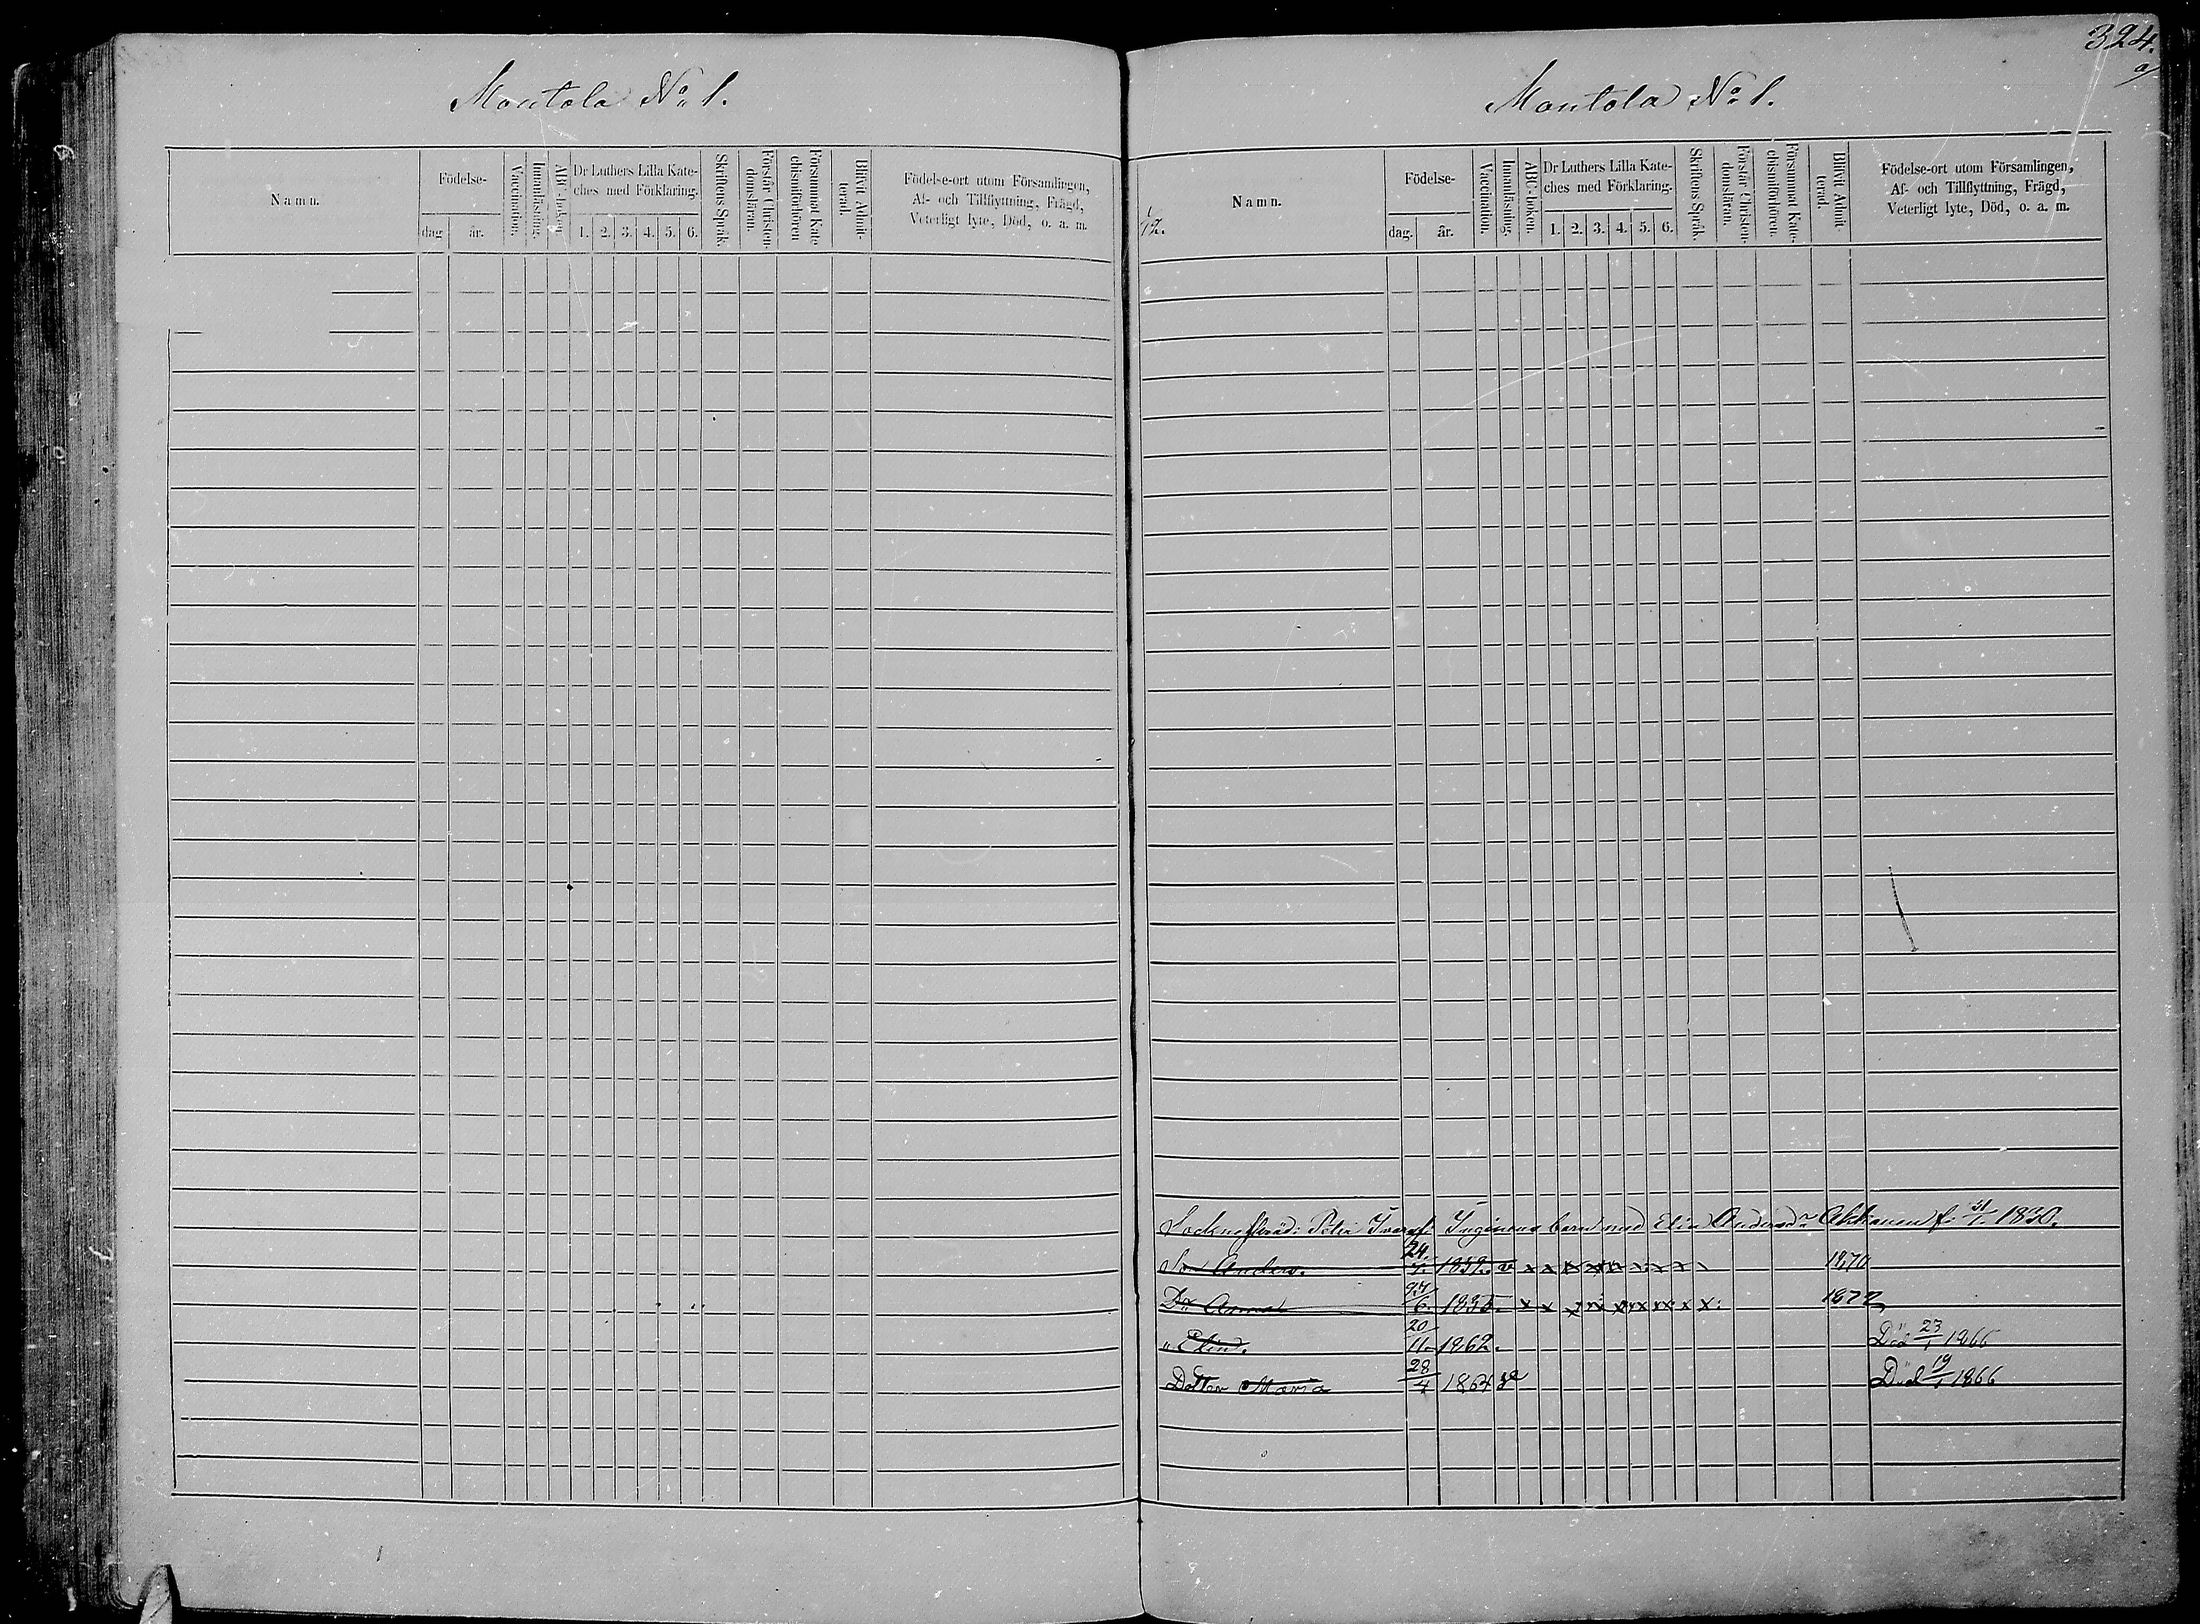 324.
a/
Montola No 1.
Montola No 1.
Namn.
Födelse-
dag
år.
Vaccination.
Innanläsning.
ABC-boken.
Dr Luthers Lilla Kate-
ches med Förklaring.
1. 2. 3. 4. 5. 6.
Skriftens Språk.
Förstår Christen-
domsläran.
Försummat Kate
chismiförhören
Blifvit Admit-
terad.
Födelse-ort utom Församlingen,
Af- och Tillflyttning, Frägd,
Veterligt lyte, Död, o. a. m.
Namn.
Födelse-
dag.
år.
Vaccination.
Innanläsning.
ABC-boken.
Dr Luthers Lilla Kate-
ches med Förklaring.
1. 2. 3. 4. 5. 6.
Skriftens Språk.
Förstår Christen-
domsläran.
Försummat Kate-
chismiförhören.
Blifvit Admit
terad.
Födelse-ort utom Församlingen,
Af- och Tillflyttning, Frägd,
Veterligt lyte, Död, o. a. m.
barn med Elin Andersd:r 1830.
Son Anders. 24 1870
D:r Anna 6. 1872
" Elin. 20/11 1862. Död 23/1 1866
Dotter Maria 28/4 1864 Död 19/1 1866